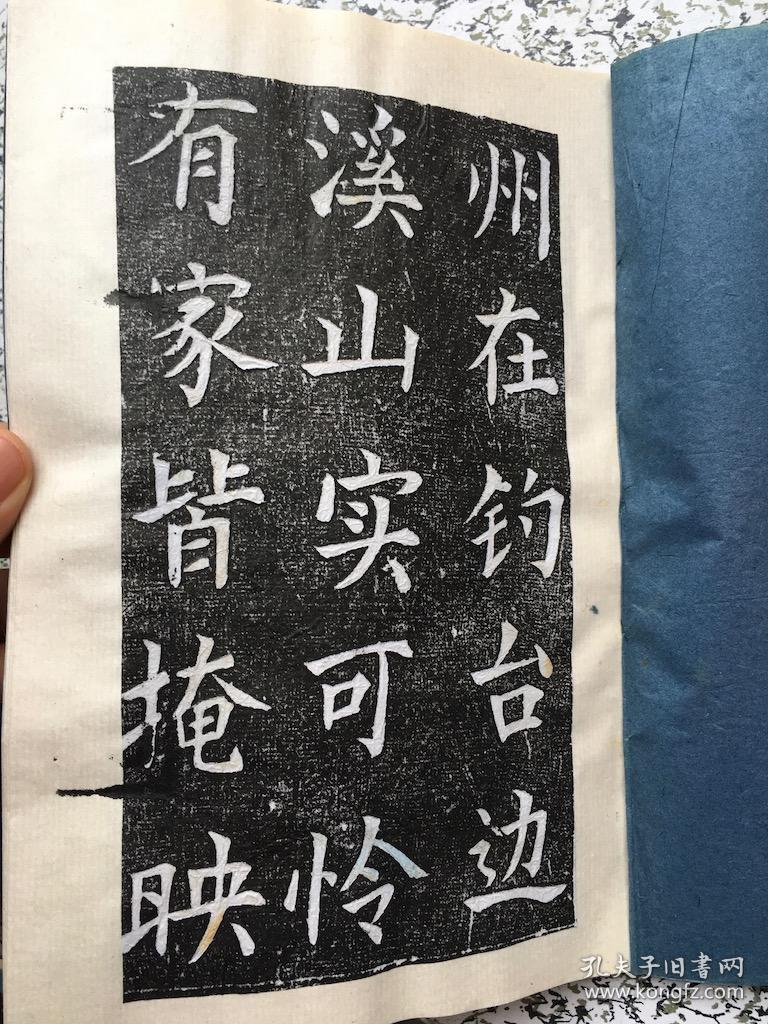 州在钓台边
溪山实可怜
有家皆掩映
孔夫子旧書网
www.kongfz.com